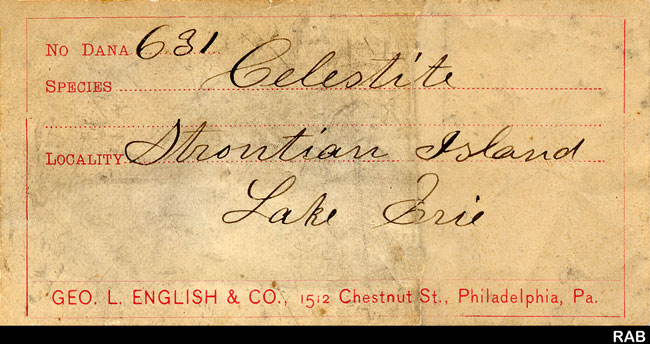 No Dana 631
Species Celestite
Locality Strontian Island
Lake Erie
GEO. L. ENGLISH & CO., 1512 Chestnut St., Philadelphia, Pa.
RAB